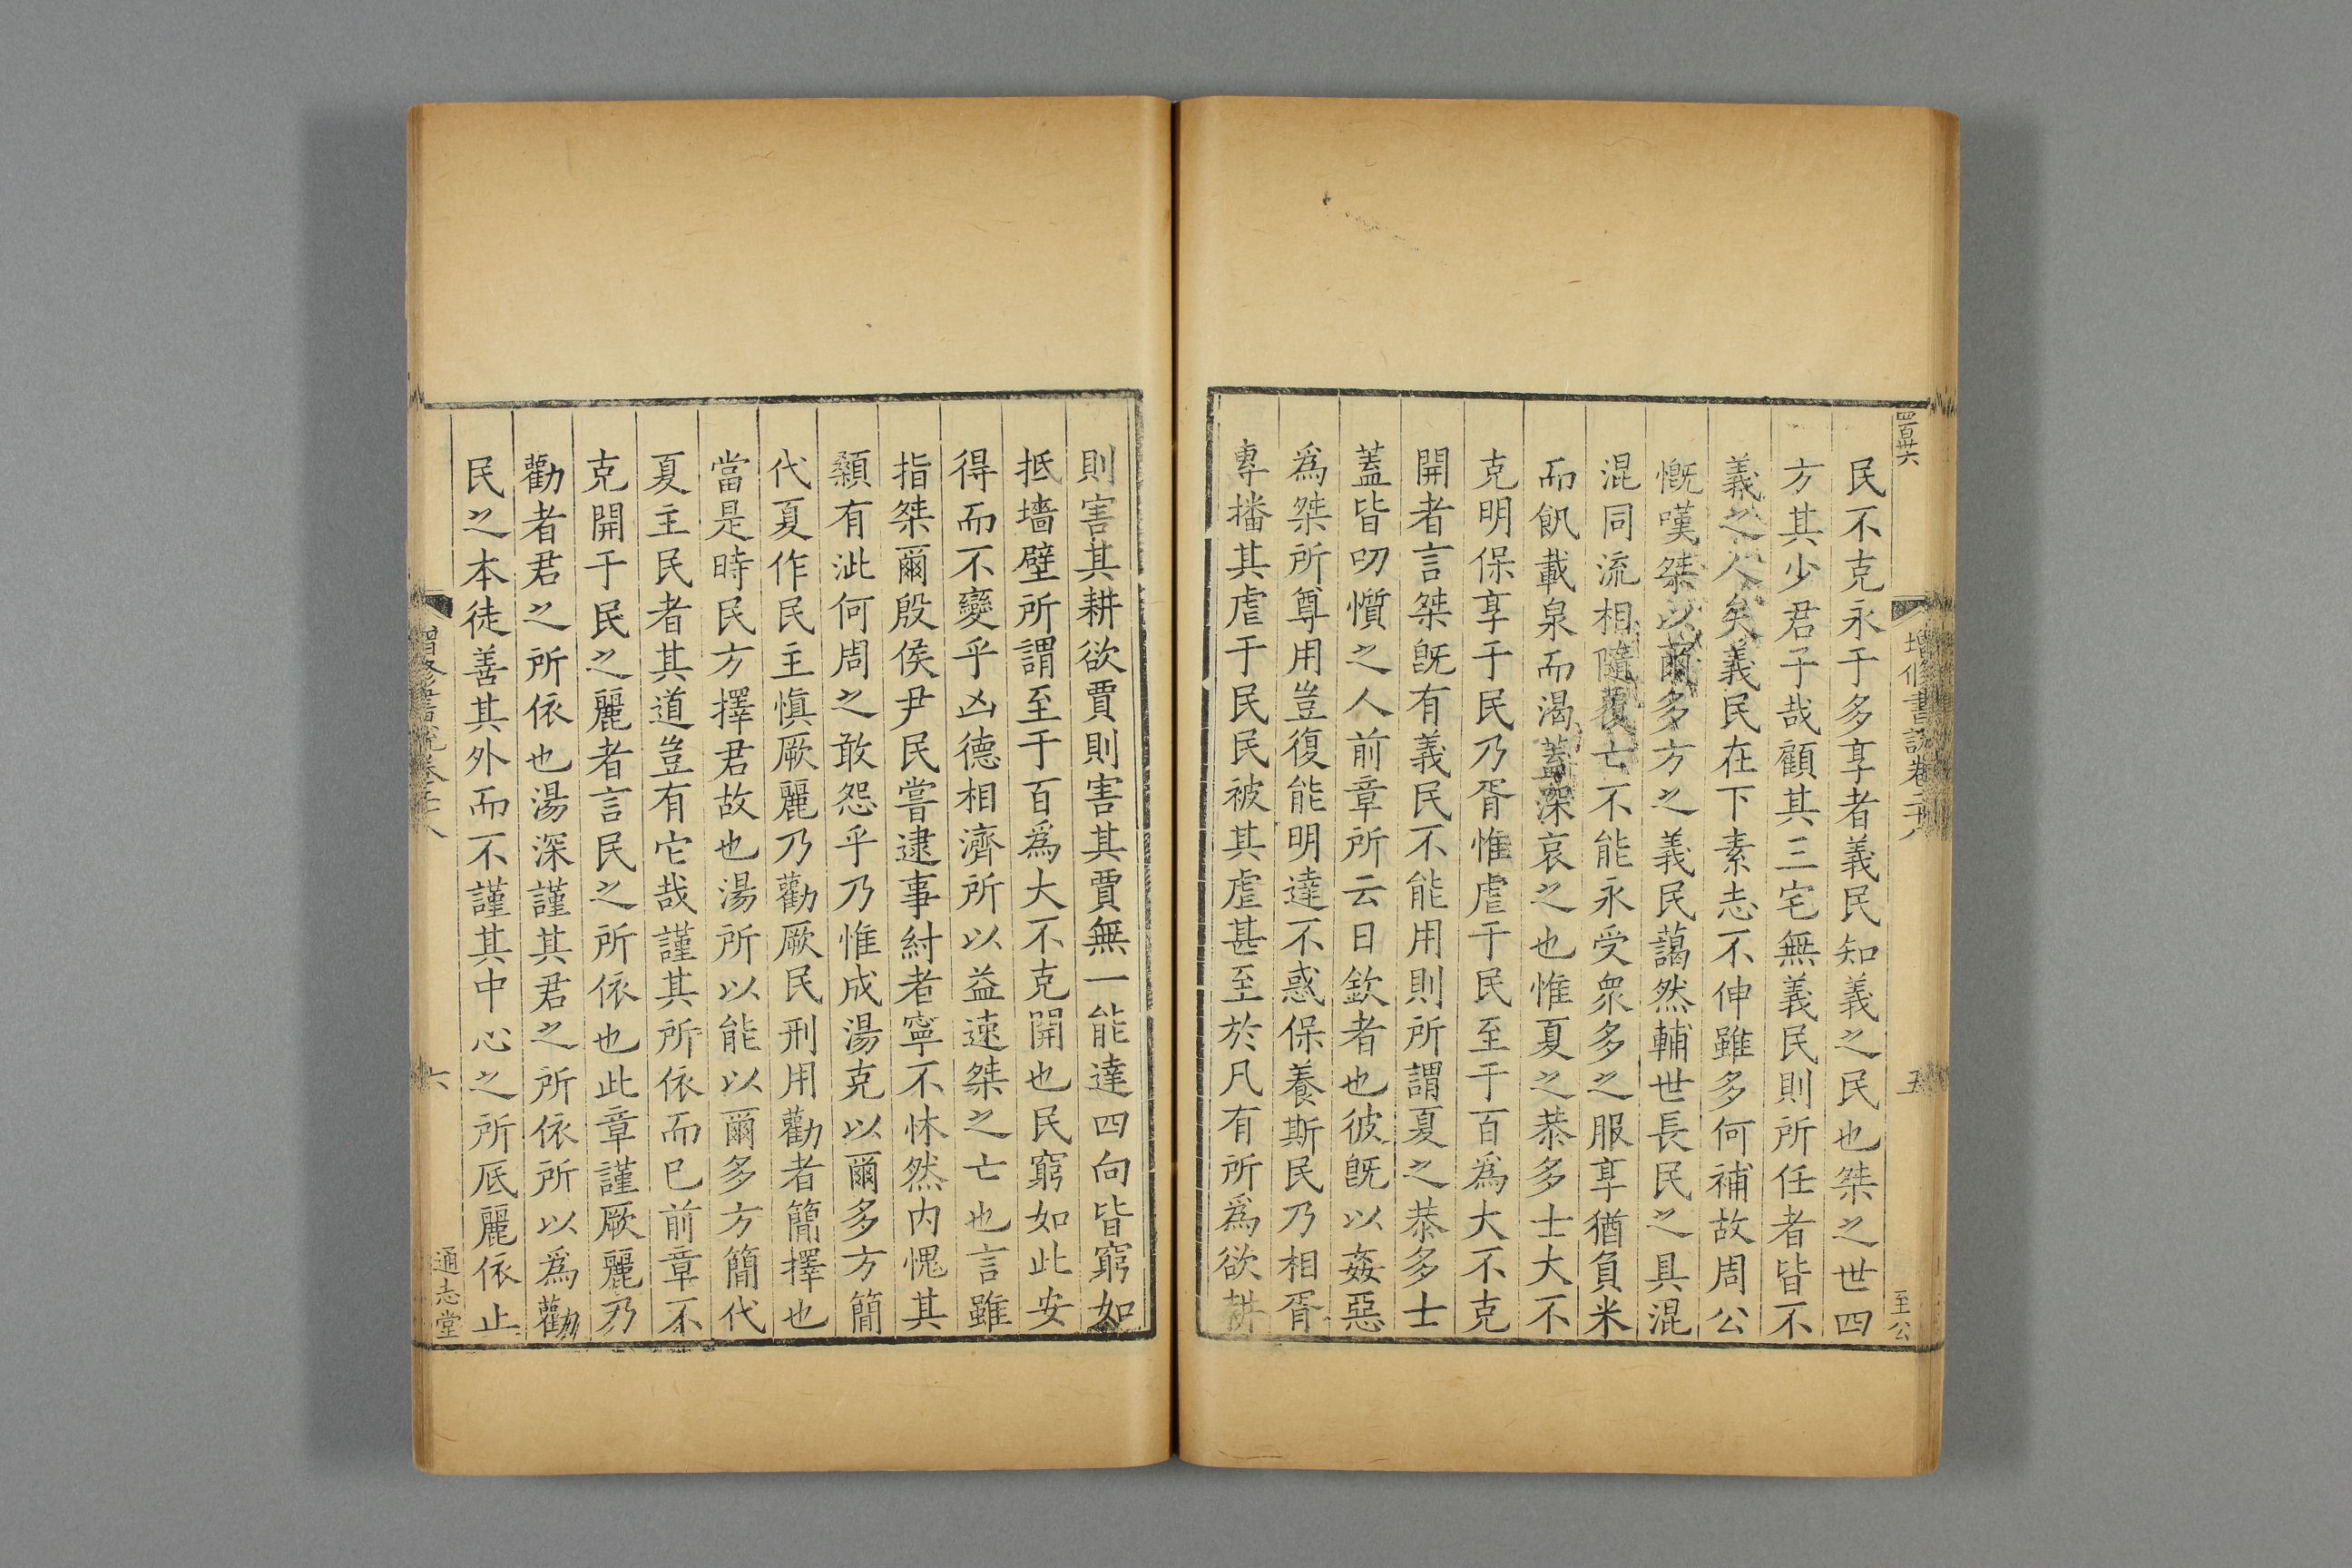 四百卅六
增修書說卷二十八
五
至公
民不克永于多享者義民知義之民也桀之世四
方其少君子哉顧其三宅無義民則所任者皆不
義之人矣義民在下素志不伸雖多何補故周公
慨嘆桀以爾多方之義民藹然輔世長民之具混
混同流相隨覆亡不能永受衆多之服享猶負米
而飢載泉而渴蓋深哀之也惟夏之恭多士大不
克明保享于民乃胥惟虐于民至于百爲大不克
開者言桀既有義民不能用則所謂夏之恭多士
蓋皆叨懫之人前章所云日欽者也彼既以姦惡
爲桀所尊用豈復能明達不惑保養斯民乃相胥
專播其虐于民民被其虐甚至於凡有所爲欲耕
則害其耕欲賈則害其賈無一能達四向皆窮如
抵墻壁所謂至于百爲大不克開也民窮如此安
得而不變乎凶德相濟所以益速桀之亡也言雖
指桀爾殷侯尹民嘗逮事紂者寧不怵然内愧其
顙有泚何周之敢怨乎乃惟成湯克以爾多方簡
代夏作民主愼厥麗乃勸厥民刑用勸者簡擇也
當是時民方擇君故也湯所以能以爾多方簡代
夏主民者其道豈有它哉謹其所依而巳前章不
克開于民之麗者言民之所依也此章謹厥麗乃
勸者君之所依也湯深謹其君之所依所以爲勸
民之本徒善其外而不謹其中心之所底麗依止
增修書說卷二十八
六
通志堂